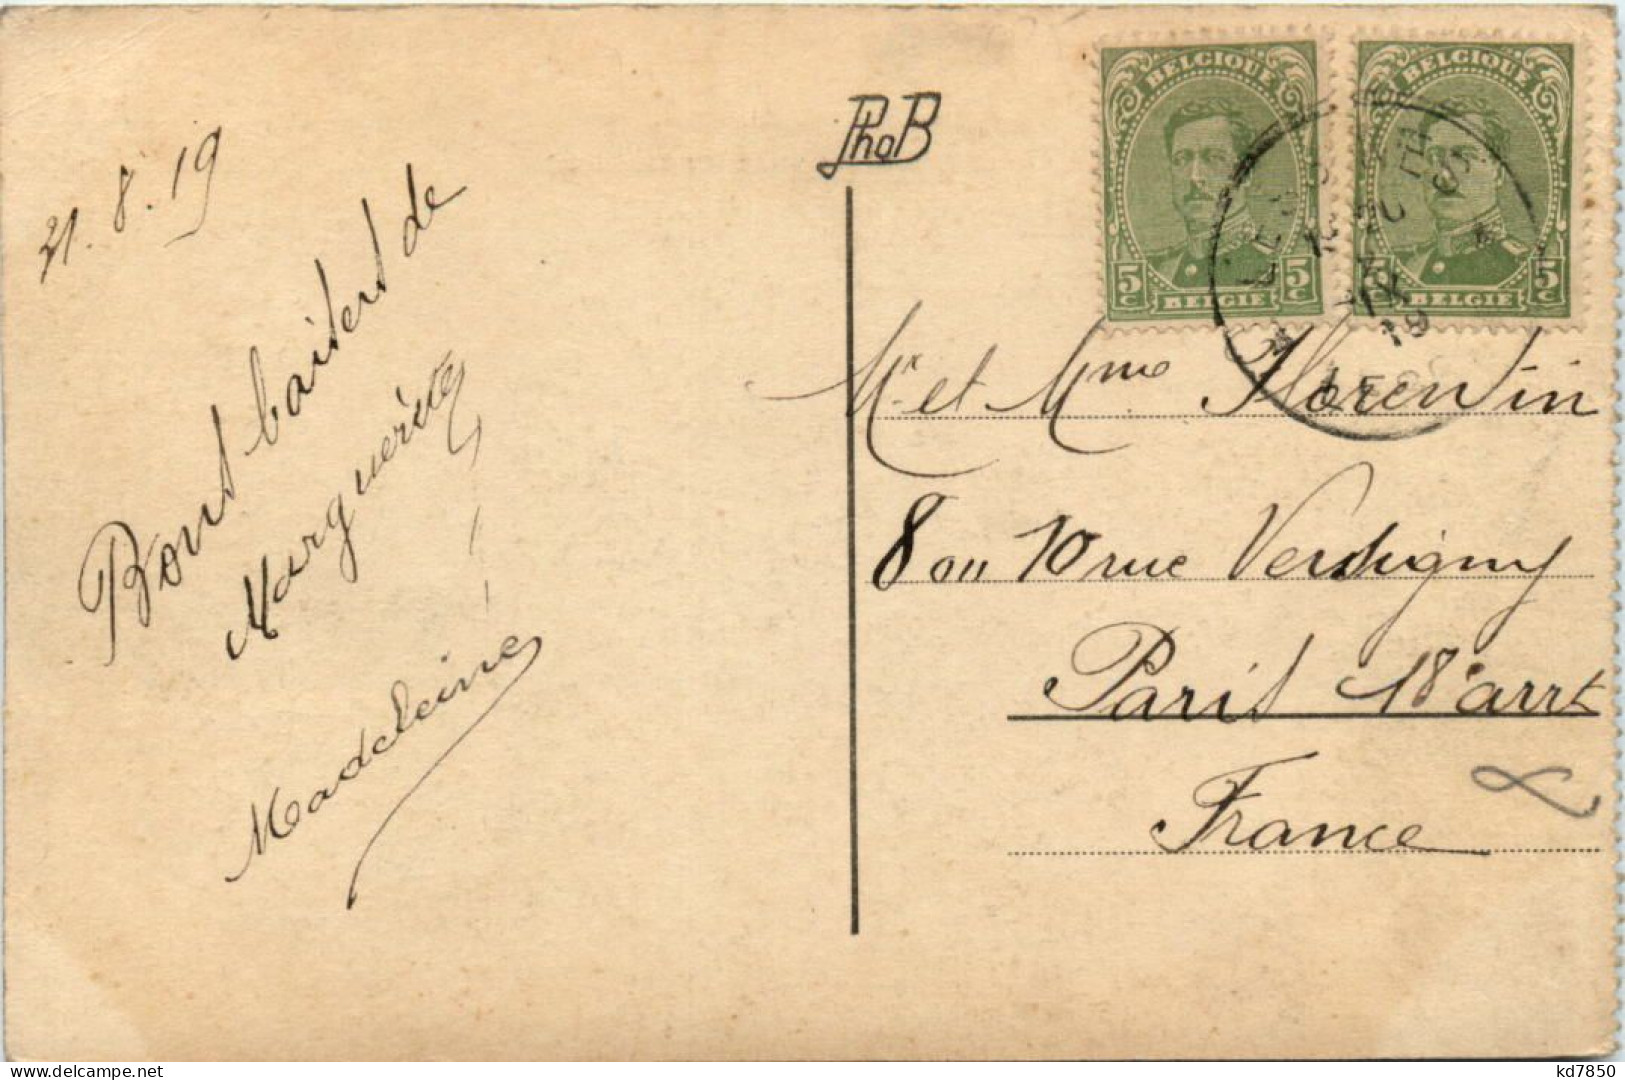 21.8.19
Bons baisers de
Marguerite
Madeleine
PhoB
BELGIQUE
5c 5c
BELGIE
BELGIQUE
5c
BELGIE
19
Mr et Mme Florentin
8 ou 10 rue Versigny
Paris 18e arrt
France
www.delcampe.net
kd7850